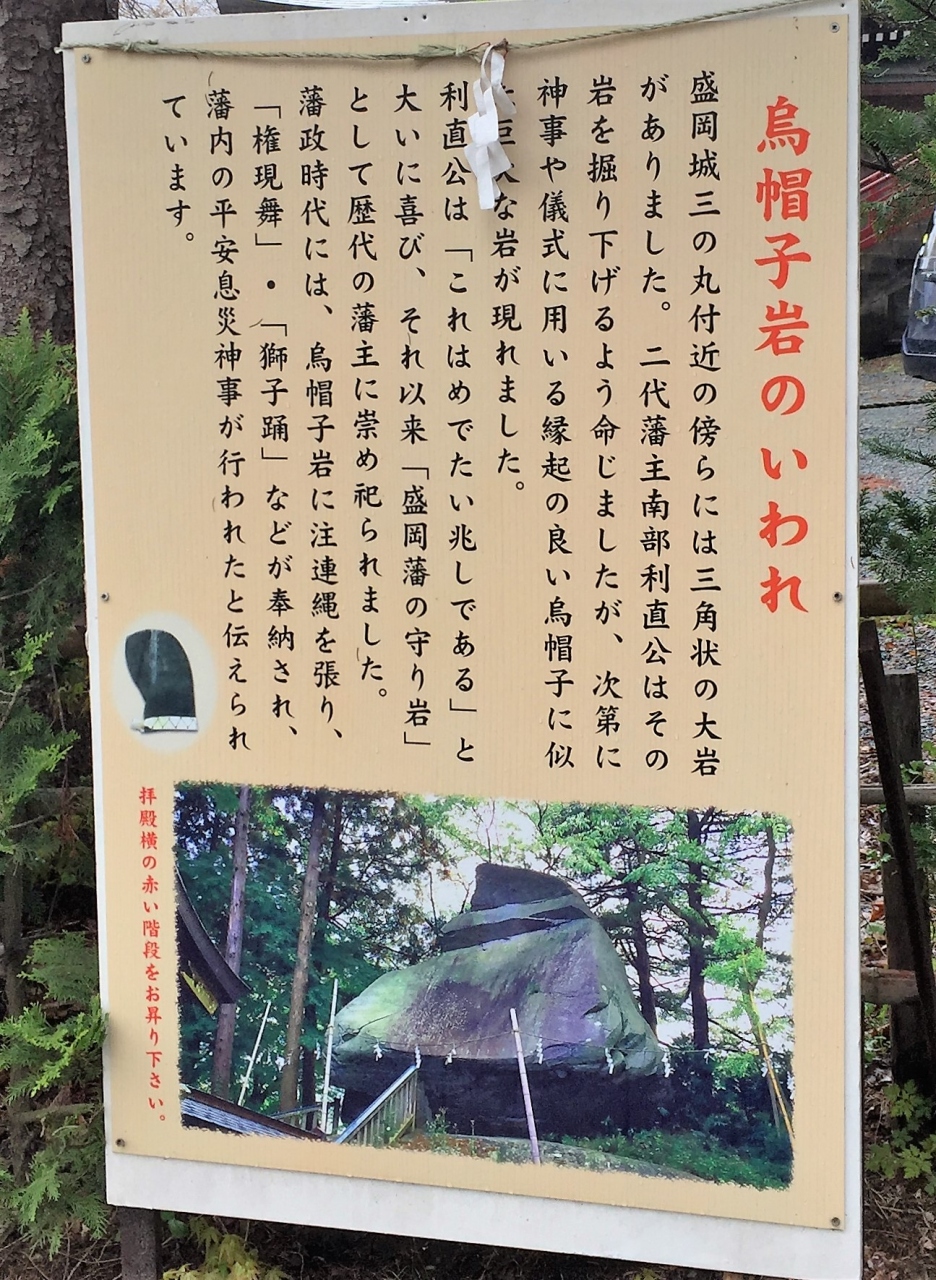 烏帽子岩のいわれ
盛岡城三の丸付近の傍らには三角状の大岩
がありました。二代藩主南部利直公はその
岩を掘り下げるよう命じましたが、次第に
神事や儀式に用いる縁起の良い烏帽子に似
な岩が現れました。
利直公は「これはめでたい兆しである」と
大いに喜び、それ以来「盛岡藩の守り岩」
として歴代の藩主に崇め祀られました。
藩政時代には、烏帽子岩に注連縄を張り、
「権現舞」・「獅子踊」などが奉納され、
藩内の平安息災神事が行われたと伝えられ
ています。
拝殿横の赤い階段をお昇り下さい。